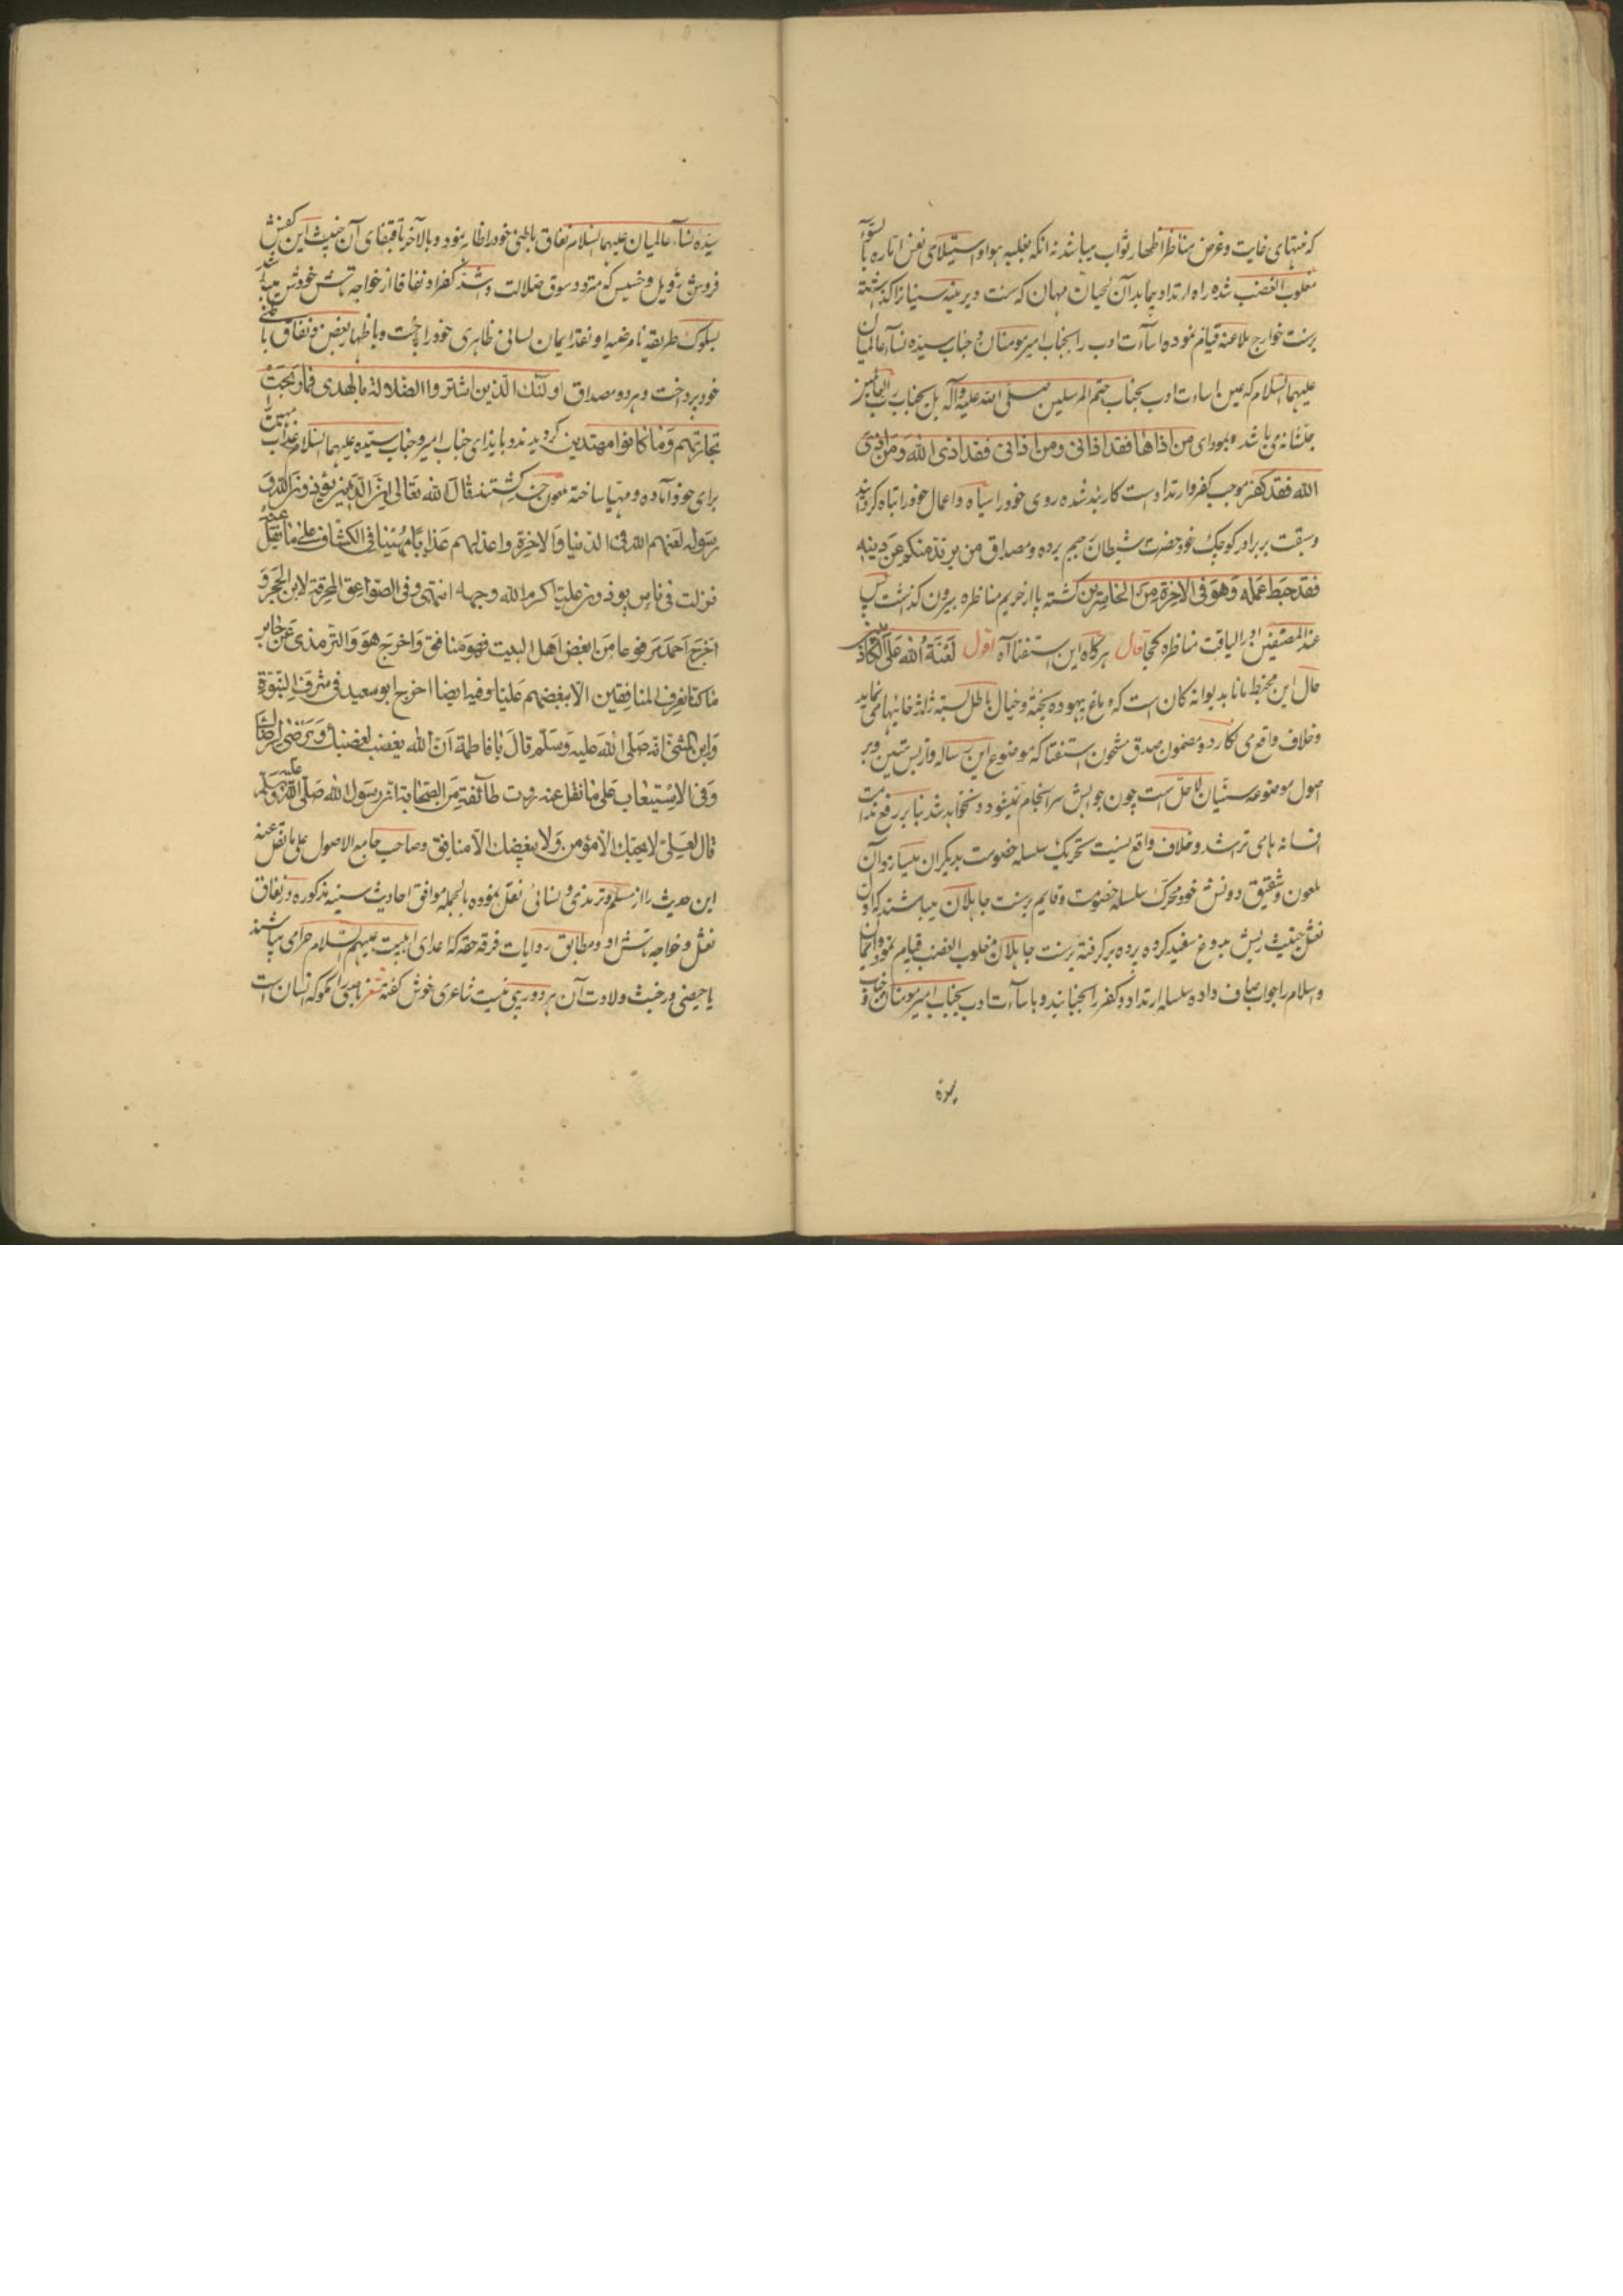 که منتهای غایت و غرض مناظر اظهار ثواب میباشد نه انکه بغلبه هوا و استیلای نفس اماره بالسوء
مغلوب الغضب شده راه ارتداد پیماید آن که سنت دیرینه سنیانرا کذاشته
برسنت خوارج ملاعنه قیام نموده اساءت ادب را بجناب امیر مومنان و جناب سیده نساء عالمیان
علیهما السلام که عین اساءت ادب بجناب ختم المرسلین صلی الله علیه وآله بل بجناب رب العالمین
جلشانه می باشد و بمودای من اذاها فقد اذانی ومن اذانی فقد اذی الله ومن اذی
الله فقد کفر موجب کفر و ارتداد است کاربند شده روی خود را سیاه و اعمال خود را تباه کردانید
وسبقت بر برادر کوچک خود حضرت شیطان رجیم برده و مصداق من یرتد منکم عن دینه
فقد حبط عمله وهو فی الاخرة من الخاسرین کشته پا از حریم مناظره بیرون کذاشت پس
عند المصنفین او را لیاقت مناظره کجا قال هرکاه این استفتا آه اقول لعنة الله علی الکاذبین
حال این مخبط مانا بدیوانه کان است که دماغ بیهوده پخته و خیال باطل بسته ژاژ خائیها می نماید
وخلاف واقع می نکارد و مضمون صدق مشحون استفتا که موضوع این رساله و از بس متین و بر
اصول موضوعه سنیان لاحل است چون جوابش سرانجام نمیشود و نخواهد شد بنا بر رفع ندامت
افسانه های تراشد و خلاف واقع نسبت تحریک سلسله خصومت بدیکران میسازد و آن
ملعون و شقیق دونش خود محرک سلسله خصومت و قایم برسنت جاهلان میباشند که اول آن
نعثل خبیث ریش بدروغ سفید کرده پرده برکرفته برسنت جاهلان مغلوب الغضب قیام نمود و ایمان
واسلام را جواب صاف داده سلسله ارتداد و کفر را جنبانید و باساءت ادب بجناب امیر مومنان و جناب
سیده
سیده نساء عالمیان علیهما السلام نفاق باطنی خود را ظاهر نمود و بالآخر باقتفای آن خبیث این کفش
فروش رذیل و خسیس که متردد سوق ضلالت و اشد کفرا و نفاقا از خواجه تاش خودش میباشد
بسلوک طریقه نامرضیه او نقد ایمان لسانی ظاهری خود را باخت و باظهار بغض و نفاق باطنی
خود پرداخت و هر دو مصداق اولئک الذین اشتروا الضلالة بالهدی فما ربحت
تجارتهم وما کانوا مهتدین کردیدند و بایذای جناب امیر و جناب سیده علیهما السلام عذاب مهین را
برای خود آماده و مهیا ساخته ملعون کشتند قال الله تعالی ان الذین یؤذون الله و
رسوله لعنهم الله فی الدنیا والاخرة واعد لهم عذابا مهینا فی الکشاف علی ما نقل عنه
نزلت فی ناس یؤذون علیا کرم الله وجهه انتهی وفی الصواعق المحرقة لابن الحجر و
اخرج احمد مرفوعا من ابغض اهل البیت فهو منافق واخرج هو والترمذی عن جابر
ما کنا نعرف المنافقین الا ببغضهم علیا وفیه ایضا اخرج ابو سعید فی شرف النبوة
وابن المثنی انه صلی الله علیه وسلم قال یا فاطمة ان الله یغضب لغضبک ویرضی لرضاک
وفی الاستیعاب علی ما نقل عنه روت طائفة من الصحابة ان رسول الله صلی الله علیه وسلم
قال لعلی لا یحبک الا مؤمن ولا یبغضک الا منافق وصاحب جامع الاصول علی ما نقل عنه
این حدیث را از مسلم و ترمذی و نسائی نقل نموده بالجمله موافق احادیث سنیه مذکوره در نفاق
نعثل و خواجه تاش او و مطابق روایات فرقه حقه که اعدای اهلبیت علیهم السلام حرامی میباشند
یا حیضی در خبث ولادت آن هر دو ریبی نیست شاعری خوش کفته شعر ناصبی را مکو که انسان است